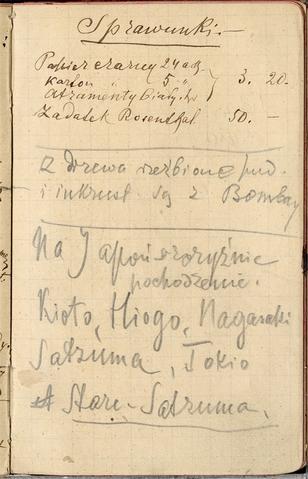 Sprawunki.—
Papier czarny 24 ark.
karton " 5 " } 3. 20.
Atramenty Białych
Zadatek Rosenthal. 50. —
Z drzewa rzeźbione pud.
i inkrust są z Bombay
Na Japońszczyźnie
pochodzenie.
Kioto, Hiogo, Nagasaki
Satzuma, Tokio
Stare-Satzuma.